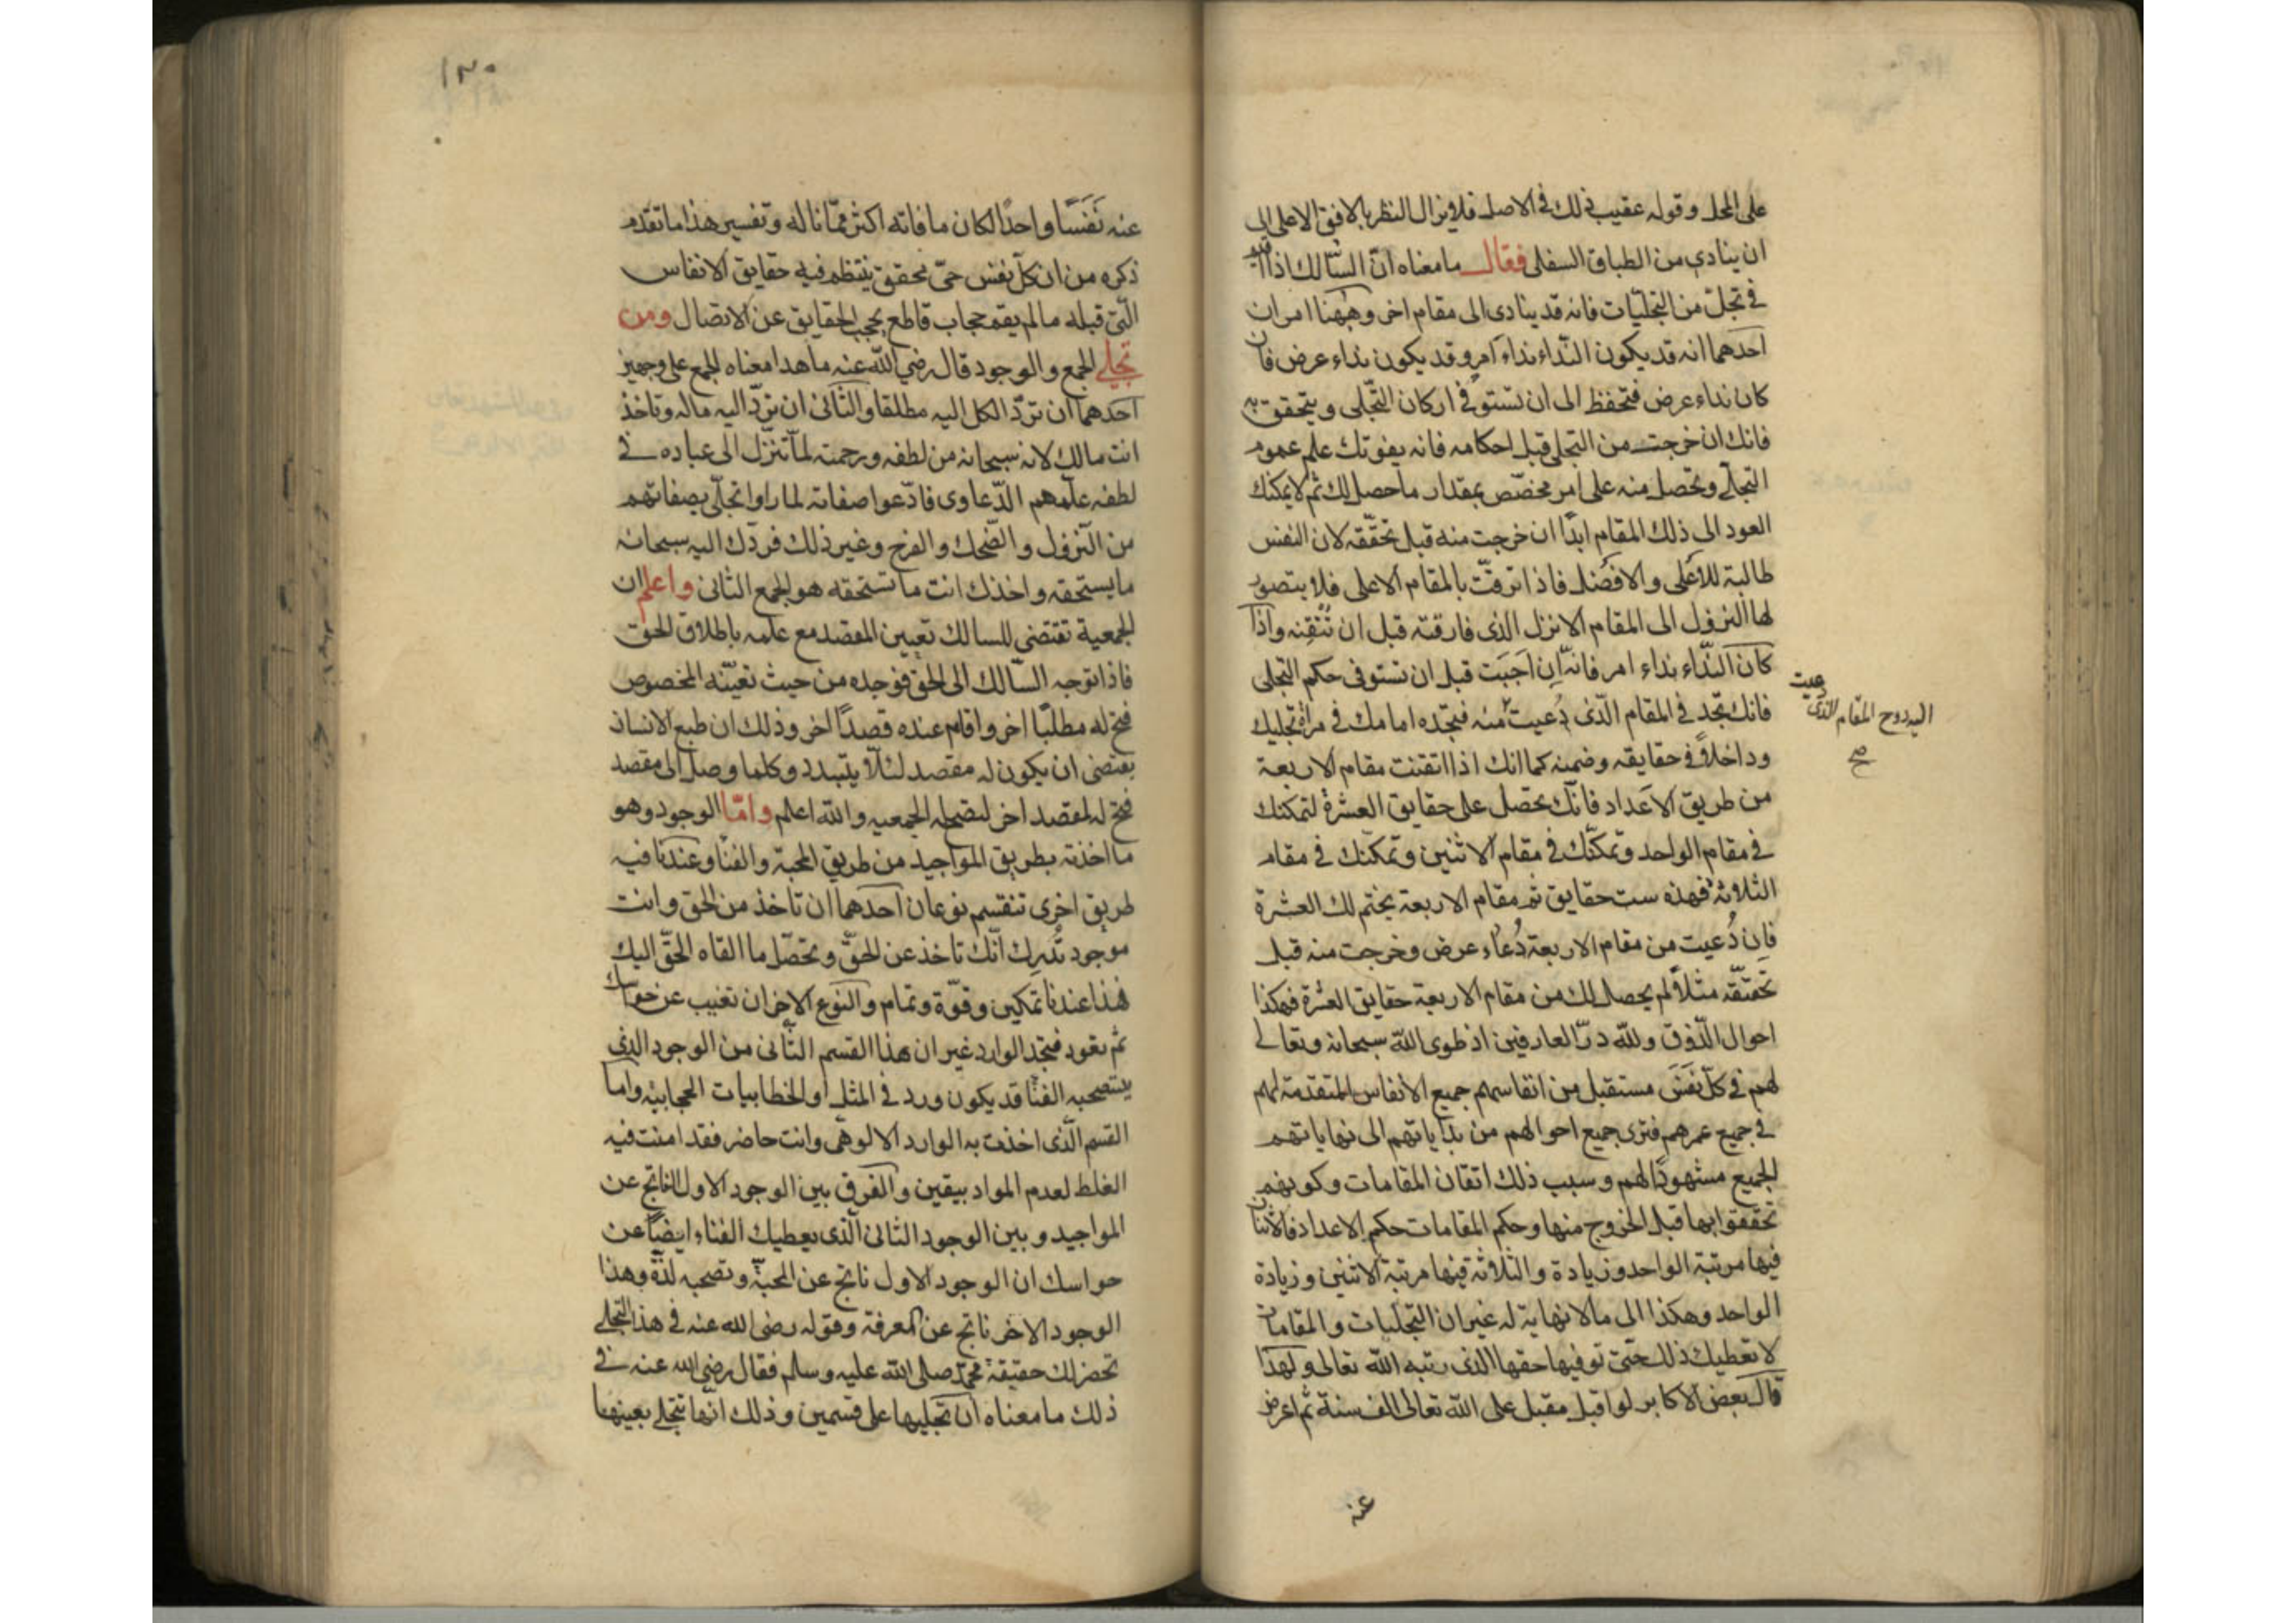 على المحل وقوله عقيب ذلك في الاصل فلا يزال النظر بالافق الاعلى الى
ان ينادى من الطباق السفلى فقال ما معناه انّ السّالك اذا
في تجلّ من التجلّيات فانه قد ينادى الى مقام اخر وههنا امران
احدهما انه قد يكون النّداء نداء امر وقد يكون نداء عرض فان
كان نداء عرض فتحفظ الى ان تستوفى اركان التّجلى ويتحقق به
فانك ان خرجت من التجلى قبل احكامه فانه يفوتك علم عموم
التجلّى وتحصل منه على امر مخصّص بمقدار ما حصل لك ثم لا يمكنك
العود الى ذلك المقام ابدًا ان خرجت منه قبل تحقّقه لان النفس
طالبة للاعلى والافضل فاذا ترقّت بالمقام الاعلى فلا يتصور
لها النزول الى المقام الانزل الذى فارقته قبل ان تتقنه واذا
كان النّداء نداء امر فانه ان اجبت قبل ان تستوفى حكم التجلى
فانك تجد في المقام الّذى دُعيت منه فتجده امامك في مراة تجليك
دعيت
اليه روح المقام الذى
صح
وداخلاً في حقايقه وضمنه كما انك اذا اتقنت مقام الاربعة
من طريق الاعداد فانّك تحصل على حقايق العشرة لتمكنك
في مقام الواحد وتمكّنك في مقام الاثنين وتمكّنك في مقام
الثلاثة فهذه ست حقايق ثم مقام الاربعة يختم لك العشرة
فان دُعيت من مقام الاربعة دُعاء عرض وخرجت منه قبل
تحققه مثلاً لم يحصل لك من مقام الاربعة حقايق العشرة فهكذا
احوال الذّوق ولله درّ العارفين اذ طوى الله سبحانه وتعالى
لهم في كلّ نَفَس مستقبل من انفاسهم جميع الانفاس المتقدمة لهم
في جميع عمرهم فترى جميع احوالهم من بداياتهم الى نهاياتهم
الجميع مشهودًا لهم وسبب ذلك اتقان المقامات وكونهم
تحققوا بها قبل الخروج منها وحكم المقامات حكم الاعداد فالاثنان
فيها مرتبة الواحد وزيادة والثلاثة فيها مرتبة الاثنين وزيادة
الواحد وهكذا الى ما لا نهاية له غير ان التجليات والمقامات
لا تعطيك ذلك حتّى توفيها حقها الذى رتبه الله تعالى ولهذا
قال بعض الاكابر لو اقبل مقبل على الله تعالى الف سنة ثم اعرض
عنه
١٣٠
عنه نَفَسًا واحدًا لكان ما فاته اكثر ممّا ناله وتفسير هذا ما تقدم
ذكره من ان كلّ نفس حتى تحقق ينتظم فيه حقايق الانفاس
الّتى قبله ما لم يقم حجاب قاطع يحجب الحقايق عن الاتصال ومن
تجلى الجمع والوجود قال رضي الله عنه ما هذا معناه الجمع على وجهين
احدهما ان تردّ الكل اليه مطلقا والثّانى ان تردّ اليه ماله وتاخذ
انت مالك لانه سبحانه من لطفه ورحمته لمّا تنزّل الى عباده في
لطفه علّمهم الدّعاوى فادّعوا صفاته لما راوا تجلّى بصفاتهم
من النزول والضّحك والفرح وغير ذلك فردّك اليه سبحانه
ما يستحقه واخذك انت ما تستحقه هو الجمع الثانى واعلم ان
الجمعية تقتضى للسالك تعيين المقصد مع علمه باطلاق الحق
فاذا توجه السّالك الى الحق فوجده من حيث تعيّنه المخصوص
فتح له مطلبًا اخر واقام عنده قصدًا اخر وذلك ان طبع الانسان
يقتضى ان يكون له مقصد لئلّا يتبدد وكلما وصل الى مقصد
فتح له مقصد اخر لتصح له الجمعيه والله اعلم وامّا الوجود وهو
ما اخذته بطريق المواجيد من طريق المحبة والفناء وعندنا فيه
طريق اخرى تنقسم نوعان احدهما ان تاخذ من الحق وانت
موجود تُدرك انّك تاخذ عن الحقّ وتحصّل ما القاه الحقّ اليك
فهذا عندنا تمكين وقوّة وتمام والنّوع الاخر ان تغيب عن حواسك
ثم تعود فتجد الوارد غير ان هذا القسم الثّانى من الوجود الذى
يستصحبه الفنا قد يكون ورد في المثل او الخطابيات الحجابيّه واما
القسم الّذى اخذت به الوارد الالوهى وانت حاضر فقد امنت فيه
الغلط لعدم المواد بيقين والفرق بين الوجود الاول الناتج عن
المواجيد وبين الوجود الثانى الّذى يعطيك الفناء ايضًا عن
حواسك ان الوجود الاول ناتج عن المحبّة وتصحبه لذّة وهذا
الوجود الاخر ناتج عن المعرفة وقوله رضى الله عنه في هذا التجلى
تحضر لك حقيقة محمّد صلى الله عليه وسلم فقال رضى الله عنه في
ذلك ما معناه ان تجليها على قسمين وذلك انّها تتجلى بعينها